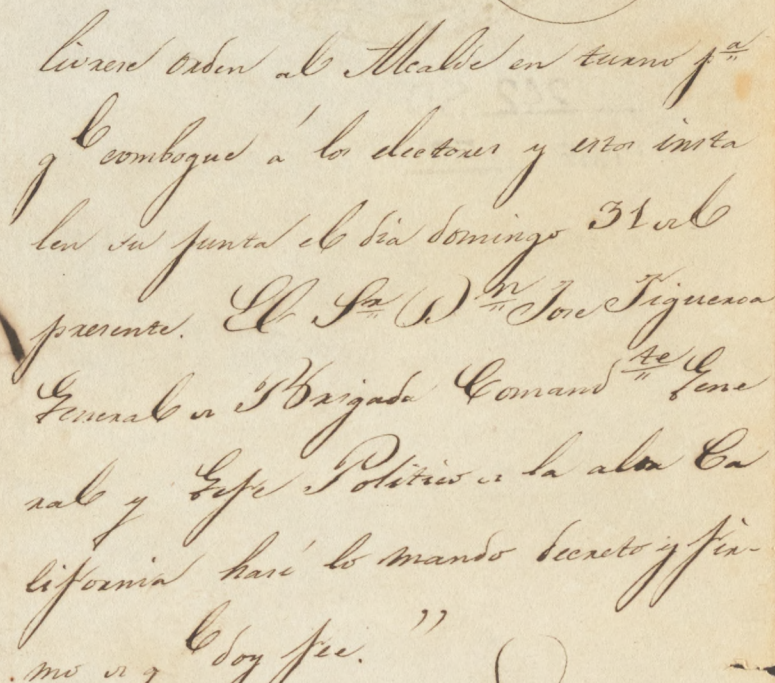 livrese orden al Alcalde en turno pª
qe combogue á los electores y estos insta
len su junta el dia domingo 31 del
presente. El Sr Dn Jose Figueroa
General de Brigada Comandte Gene
ral y Gefe Politico de la alta Ca
lifornia hasi lo mando decreto y fir-
mo de qe doy fee. "